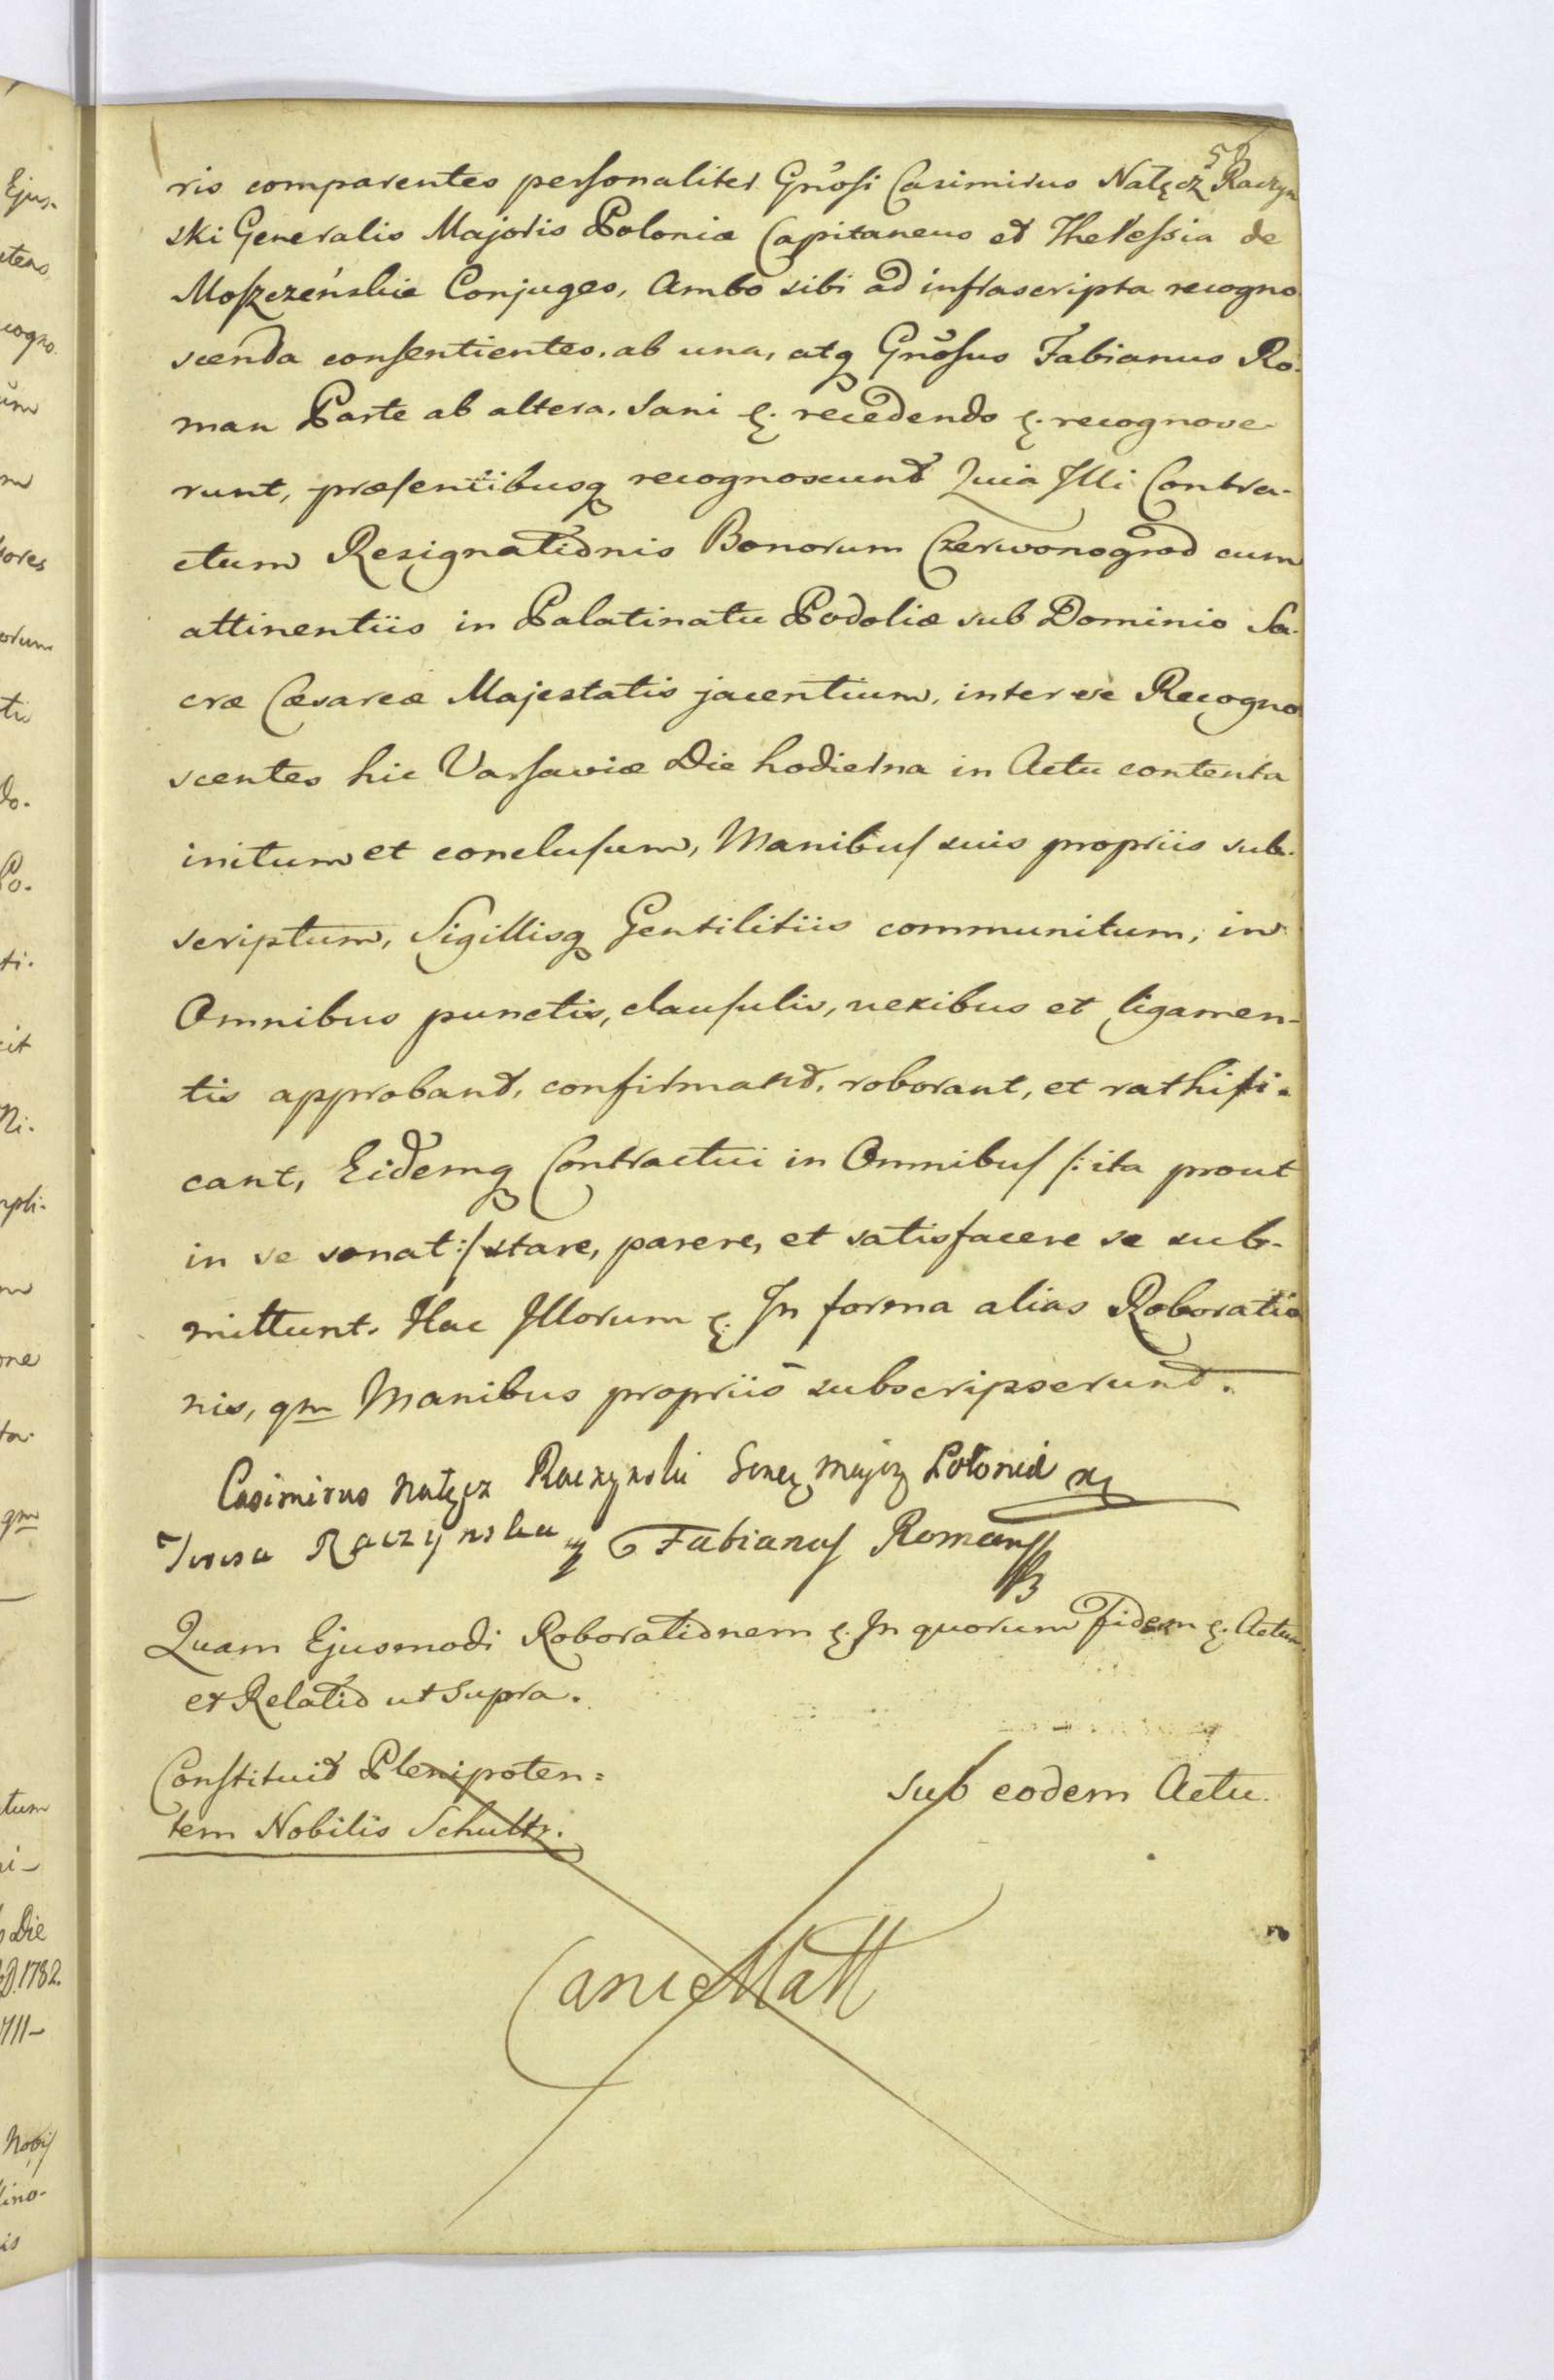 58
ris comparentes personaliter Gnosi Casimirus Nałęcz Raczyn
ski Generalis Majoris Poloniæ Capitaneus et Theressia de
Moszczeńskie Conjuges, Ambo sibi ad infrascripta recogno
scenda consentientes, ab una, atq Gnosus Fabianus Ro.
man Parte ab altera, Sani &. recedendo &. recognove-
runt, præsentibusq recognoscunt Quia Illi Contra-
ctum Resignationis Bonorum Czerwonogrod cum
attinentiis in Palatinatu Podoliæ sub Dominio Sa.
cræ Cæsareæ Majestatis jacentium, inter se Recogno
scentes hic Varsaviæ Die hodierna in Actu contenta
initum et conclusum, Manibus suis propriis sub.
scriptum, Sigillisq Gentilitiis communitum, in
Omnibus punctis, clausulis, nexibus et ligamen-
tis approbant, confirmant, roborant, et rathifi.
cant, Eidemq Contractui in Omnibus /: ita prout
in se sonat :/ stare, parere, et satisfacere se sub-
mittunt. Hac Illorum &. In forma alias Roboratio
nis, qm Manibus propriis subscripserunt.
Casimirus Nałęcz Raczynski Gener Major Poloniæ
Teresa Raczynska Fabianus Roman
Quam Ejusmodi Roborationem &. In quorum Fidem &. Actum
et Relatio ut supra.
Constituit Plenipoten=
tem Nobilis Schultz.
sub eodem Actu.